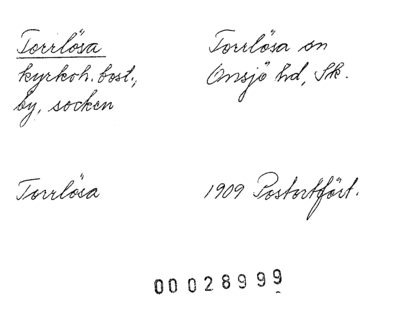 Torrlösa
kyrkoh. bost.,
by, socken
Torrlösa sn
Onsjö hd, Sk.
Torrlösa
1909 Postortfört.
00028999